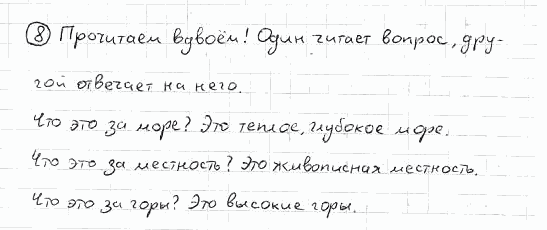 ⑧ Прочитаем вдвоём! Один читает вопрос, дру-
гой отвечает на него.
Что это за море? Это теплое, глубокое море.
Что это за местность? Это живописная местность.
Что это за горы? Это высокие горы.